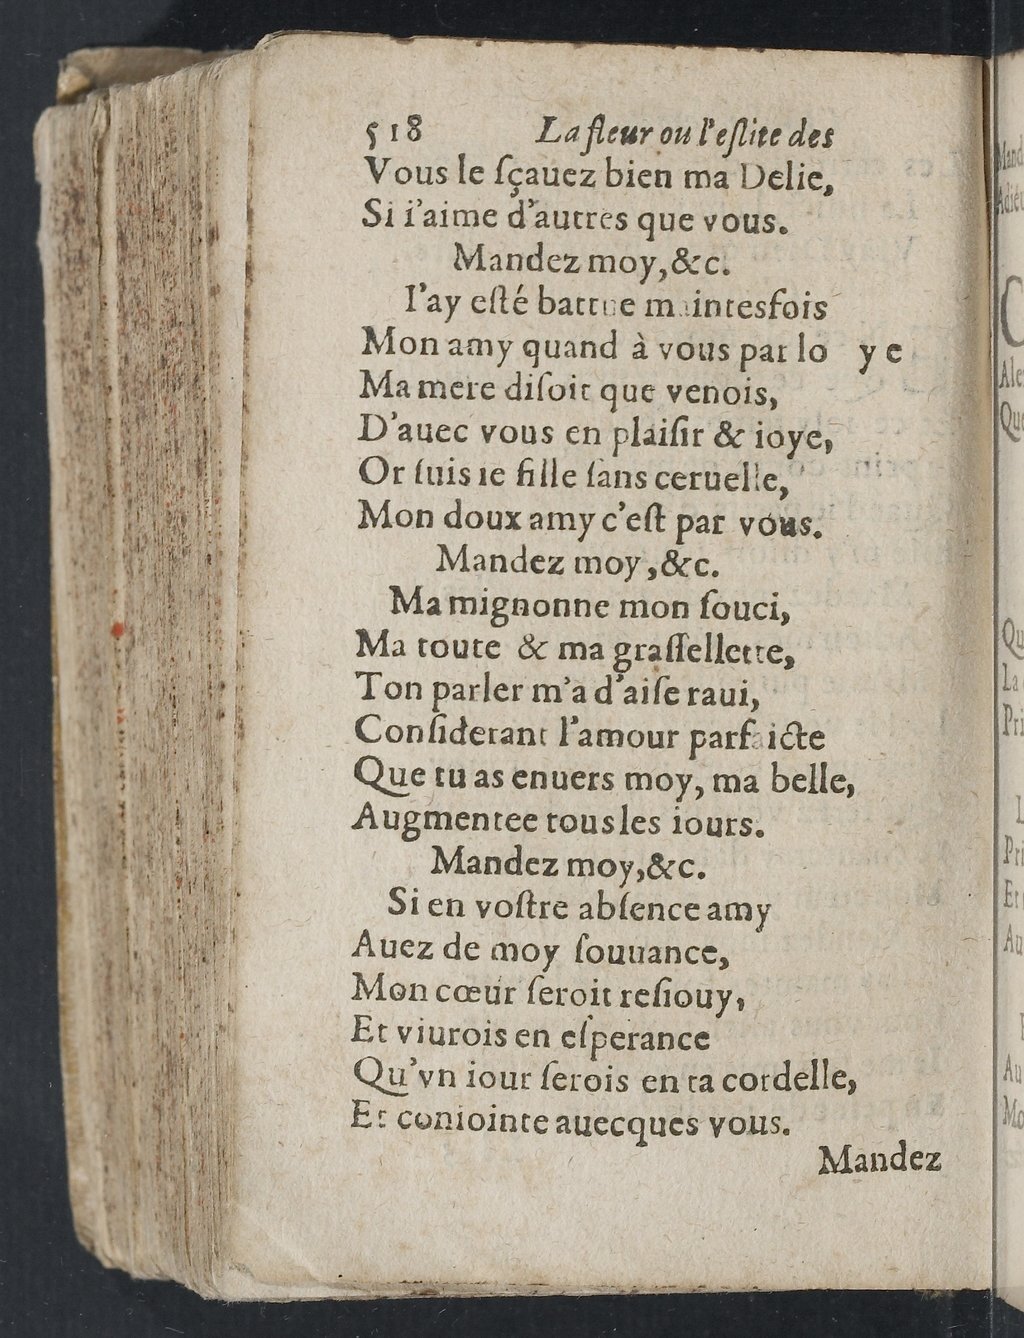 518 La fleur ou l'eſlite des
Vous le ſçauez bien ma Delie,
Si i'aime d'autres que vous.
Mandez moy, &c.
I'ay eſté battue maintesfois
Mon amy quand à vous parlo ye
Ma mere diſoit que venois,
D'auec vous en plaiſir & ioye,
Or ſuis ie fille ſans ceruelle,
Mon doux amy c'eſt par vous.
Mandez moy, &c.
Ma mignonne mon ſouci,
Ma toute & ma graſſellette,
Ton parler m'a d'aiſe raui,
Conſiderant l'amour parfaicte
Que tu as enuers moy, ma belle,
Augmentee tous les iours.
Mandez moy, &c.
Si en voſtre abſence amy
Auez de moy ſouuance,
Mon cœur ſeroit reſiouy,
Et viurois en eſperance
Qu'vn iour ſerois en ta cordelle,
Et coniointe auecques vous.
Mandez